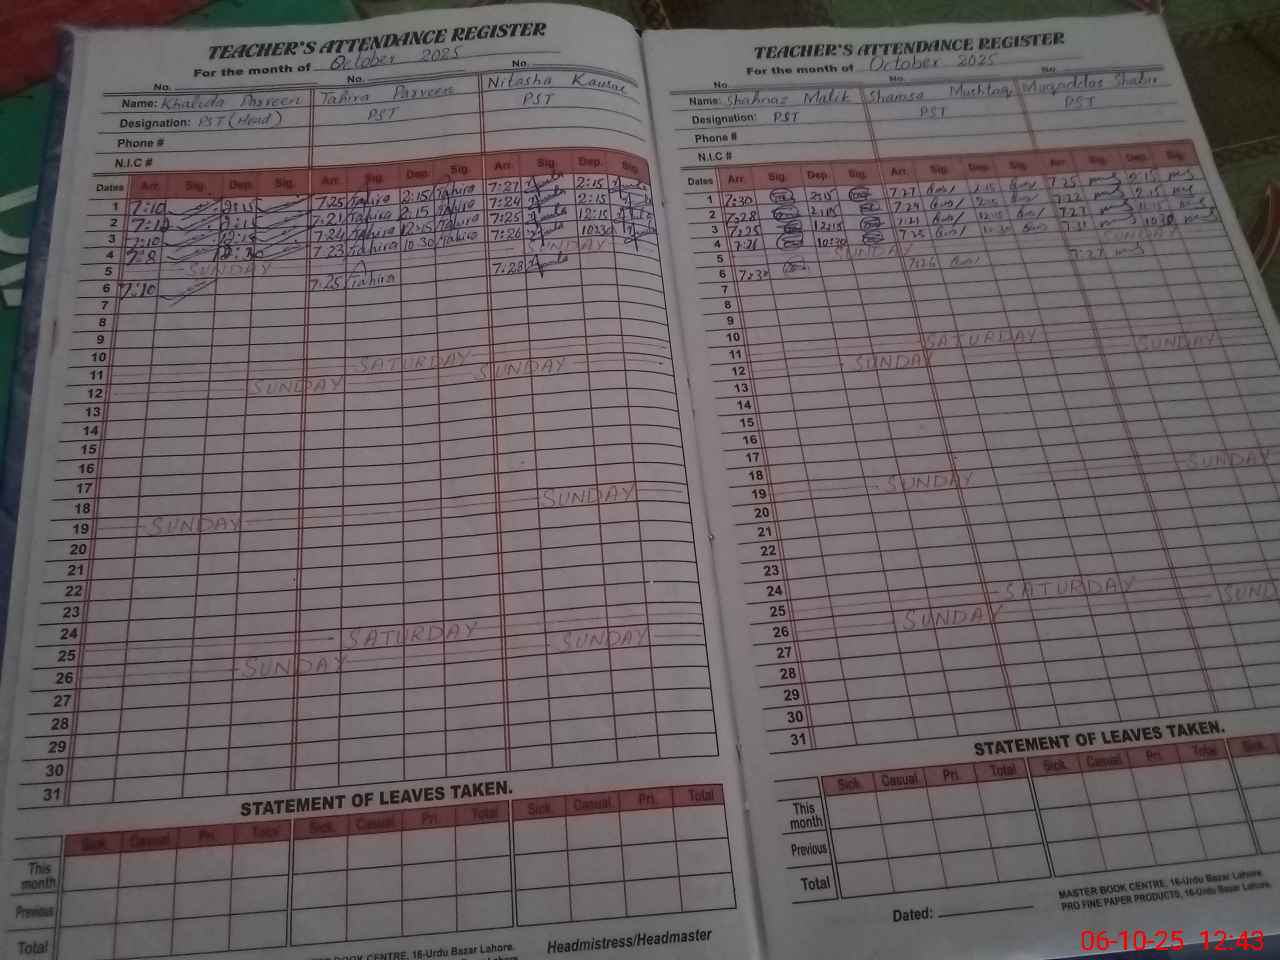 TEACHER'S ATTENDANCE REGISTER
For the month of October 2025
No. No. No.
Name: Khalida Parveen Tahira Parveen Nitasha Kausar
Designation: PST (Head) PST PST
Phone #
N.I.C #
Dates Arr. Sig. Dep. Sig. Arr. Sig. Dep. Sig. Arr. Sig. Dep. Sig.
1 7:10 2:15 7:25 Tahira 2:15 Tahira 7:27 2:15
2 7:12 2:15 7:21 Tahira 2:15 Tahira 7:24 2:15
3 7:10 12:15 7:24 Tahira 12:15 Tahira 7:25 12:15
4 7:8 7:23 Tahira 10:30 Tahira 7:26 10:30
5 SUNDAY SUNDAY
6 7:10 7:25 Tahira 7:28
7
8
9
10
11 SATURDAY
12 SUNDAY SUNDAY
13
14
15
16
17
18
19 SUNDAY SUNDAY
20
21
22
23
24
25 SATURDAY
26 SUNDAY SUNDAY
27
28
29
30
31
STATEMENT OF LEAVES TAKEN.
Sick. Casual. Pri. Total Sick. Casual. Pri. Total Sick. Casual. Pri. Total
This month
Previous
Total
BOOK CENTRE, 16-Urdu Bazar Lahore.
Headmistress/Headmaster
TEACHER'S ATTENDANCE REGISTER
For the month of October 2025
No. No.
Name: Shahnaz Malik Shamsa Mushtaq Muqaddas Shabir
Designation: PST PST PST
Phone #
N.I.C #
Dates Arr. Sig. Dep. Sig. Arr. Sig. Dep. Sig. Arr. Sig. Dep. Sig.
1 7:30 2:15 7:27 2:15 7:25 2:15
2 7:28 2:15 7:24 2:15 7:22 2:15
3 7:25 12:15 7:21 12:15 7:27
4 7:21 10:30 7:25 10:30 7:21 10:30
5 SUNDAY SUNDAY
6 7:30 7:26 7:27
7
8
9
10
11 SATURDAY
12 SUNDAY SUNDAY
13
14
15
16
17
18
19 SUNDAY SUNDAY
20
21
22
23
24
25 SATURDAY
26 SUNDAY SUND
27
28
29
30
31
STATEMENT OF LEAVES TAKEN.
Sick. Casual. Pri. Total Sick. Casual. Pri. Total Sick.
This month
Previous
Total
Dated:
MASTER BOOK CENTRE, 16-Urdu Bazar Lahore
PRO FINE PAPER PRODUCTS, 16-Urdu Bazar Lahore.
06-10-25 12:43